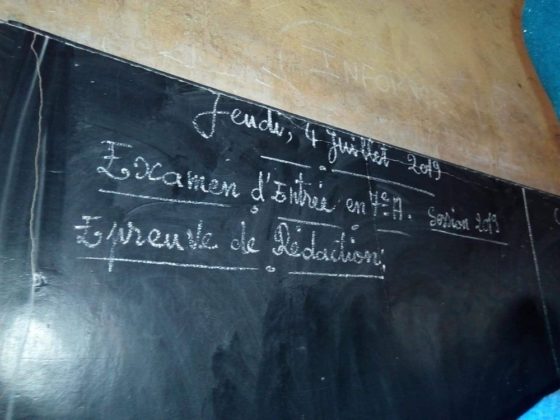 INFOR
Jeudi, 4 Juillet 2019
Examen d'Entrée en 7e A. Session 2019
Epreuve de Rédaction: